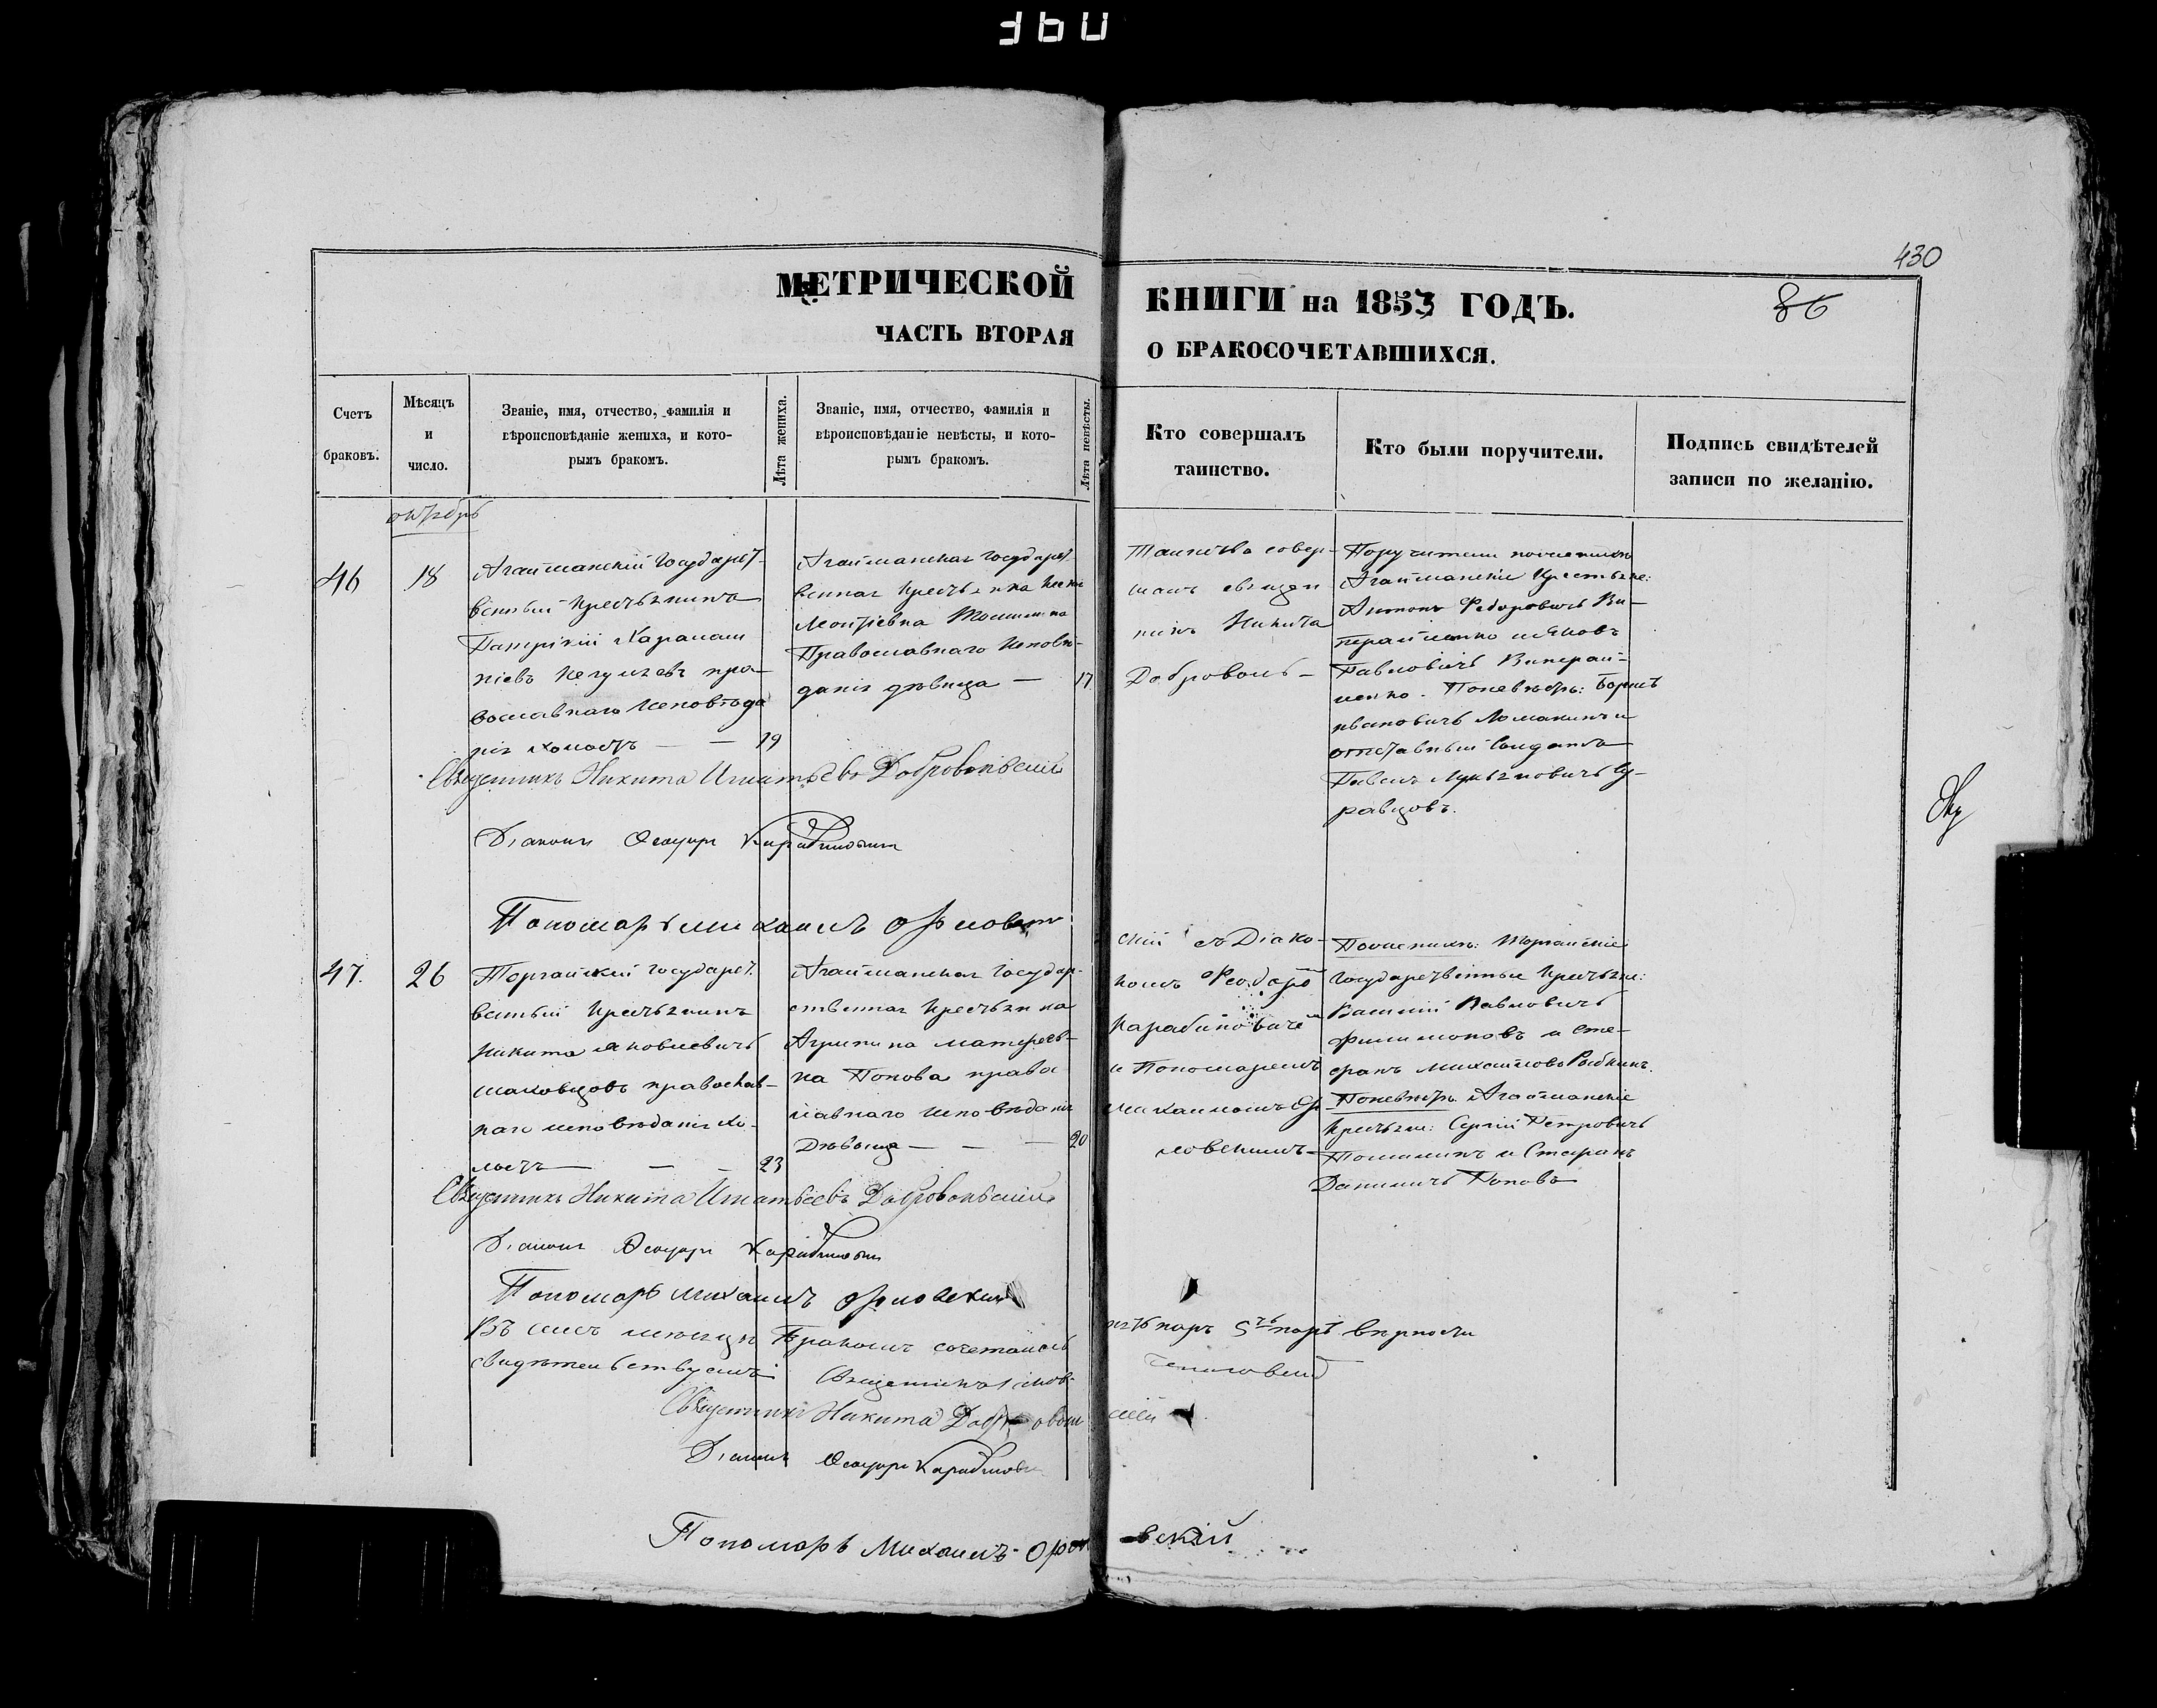 360
430
86
МЕТРИЧЕСКОЙ КНИГИ на 1853 ГОДЪ.
ЧАСТЬ ВТОРАЯ О БРАКОСОЧЕТАВШИХСЯ.
Счетъ браковъ.
Мѣсяцъ и число.
Званіе, имя, отчество, фамилія и
вѣроисповѣданіе жениха, и кото-
рымъ бракомъ.
Лѣта жениха.
Званіе, имя, отчество, фамилія и
вѣроисповѣданіе невѣсты, и кото-
рымъ бракомъ.
Лѣта невѣсты.
Кто совершалъ
таинство.
Кто были поручители.
Подпись свидѣтелей
записи по желанію.
октябрь
46
18
Агайманскій государст-
венный крестьянинъ
Патрикій
православнаго исповѣда
нія холостъ — — 19
Агайманская государст
венная крестьянка
Православнаго исповѣ-
данія дѣвица — 17
Таинство совер-
шалъ священ
никъ Никита
Доброволь-
Поручители по женихѣ
Агайманскіе крестьяне:
Антонъ Федоровичъ Ви-
Павловичъ
Поневѣстѣ: Борисъ
Ивановичъ Ломакинъ и
отставный солдатъ
Павелъ Лукьяновичъ Чу-
равцовъ.
Священникъ Никита Игнатьевъ Добровольскій
Діаконъ Феодоръ Карабиновичъ
Пономарь Михаилъ Орловскій
47.
26
Торгайскій государст.
венный крестьянинъ
Никита Яковлевичъ
Маковцовъ православ-
наго исповѣданія хо-
лостъ — — 23
Агайманская государ-
ственная крестьянка
Агрипина Матвеев-
на Попова право
славнаго исповѣданія
Дѣвица — — 20
скій съ Діако-
номъ Феодоро
Карабиновиче
и Пономаремъ
Михаиломъ Ор
ловскимъ
По женихѣ: Торгайскіе
Государственные крестьяне:
Василій Павловичъ
Филимоновъ и Сте-
фанъ Михайловъ Рыбкинъ.
Поневѣстѣ Агайманскіе
крестьяне: Сергій Петровичъ
Томилинъ и Стефанъ
Даниличъ Поповъ
Священникъ Никита Игнатьевъ Добровольскій
Діаконъ Феодоръ Карабиновичъ
Пономарь Михаилъ Орловскій
Въ семъ мѣсяцѣ бракомъ сочетались пять паръ 5ть паръ вѣрности
свидѣтельствуемъ
Священникъ Никита Добровольскій
Діаконъ Феодоръ Карабинович
Пономарь Михаилъ Орловскій